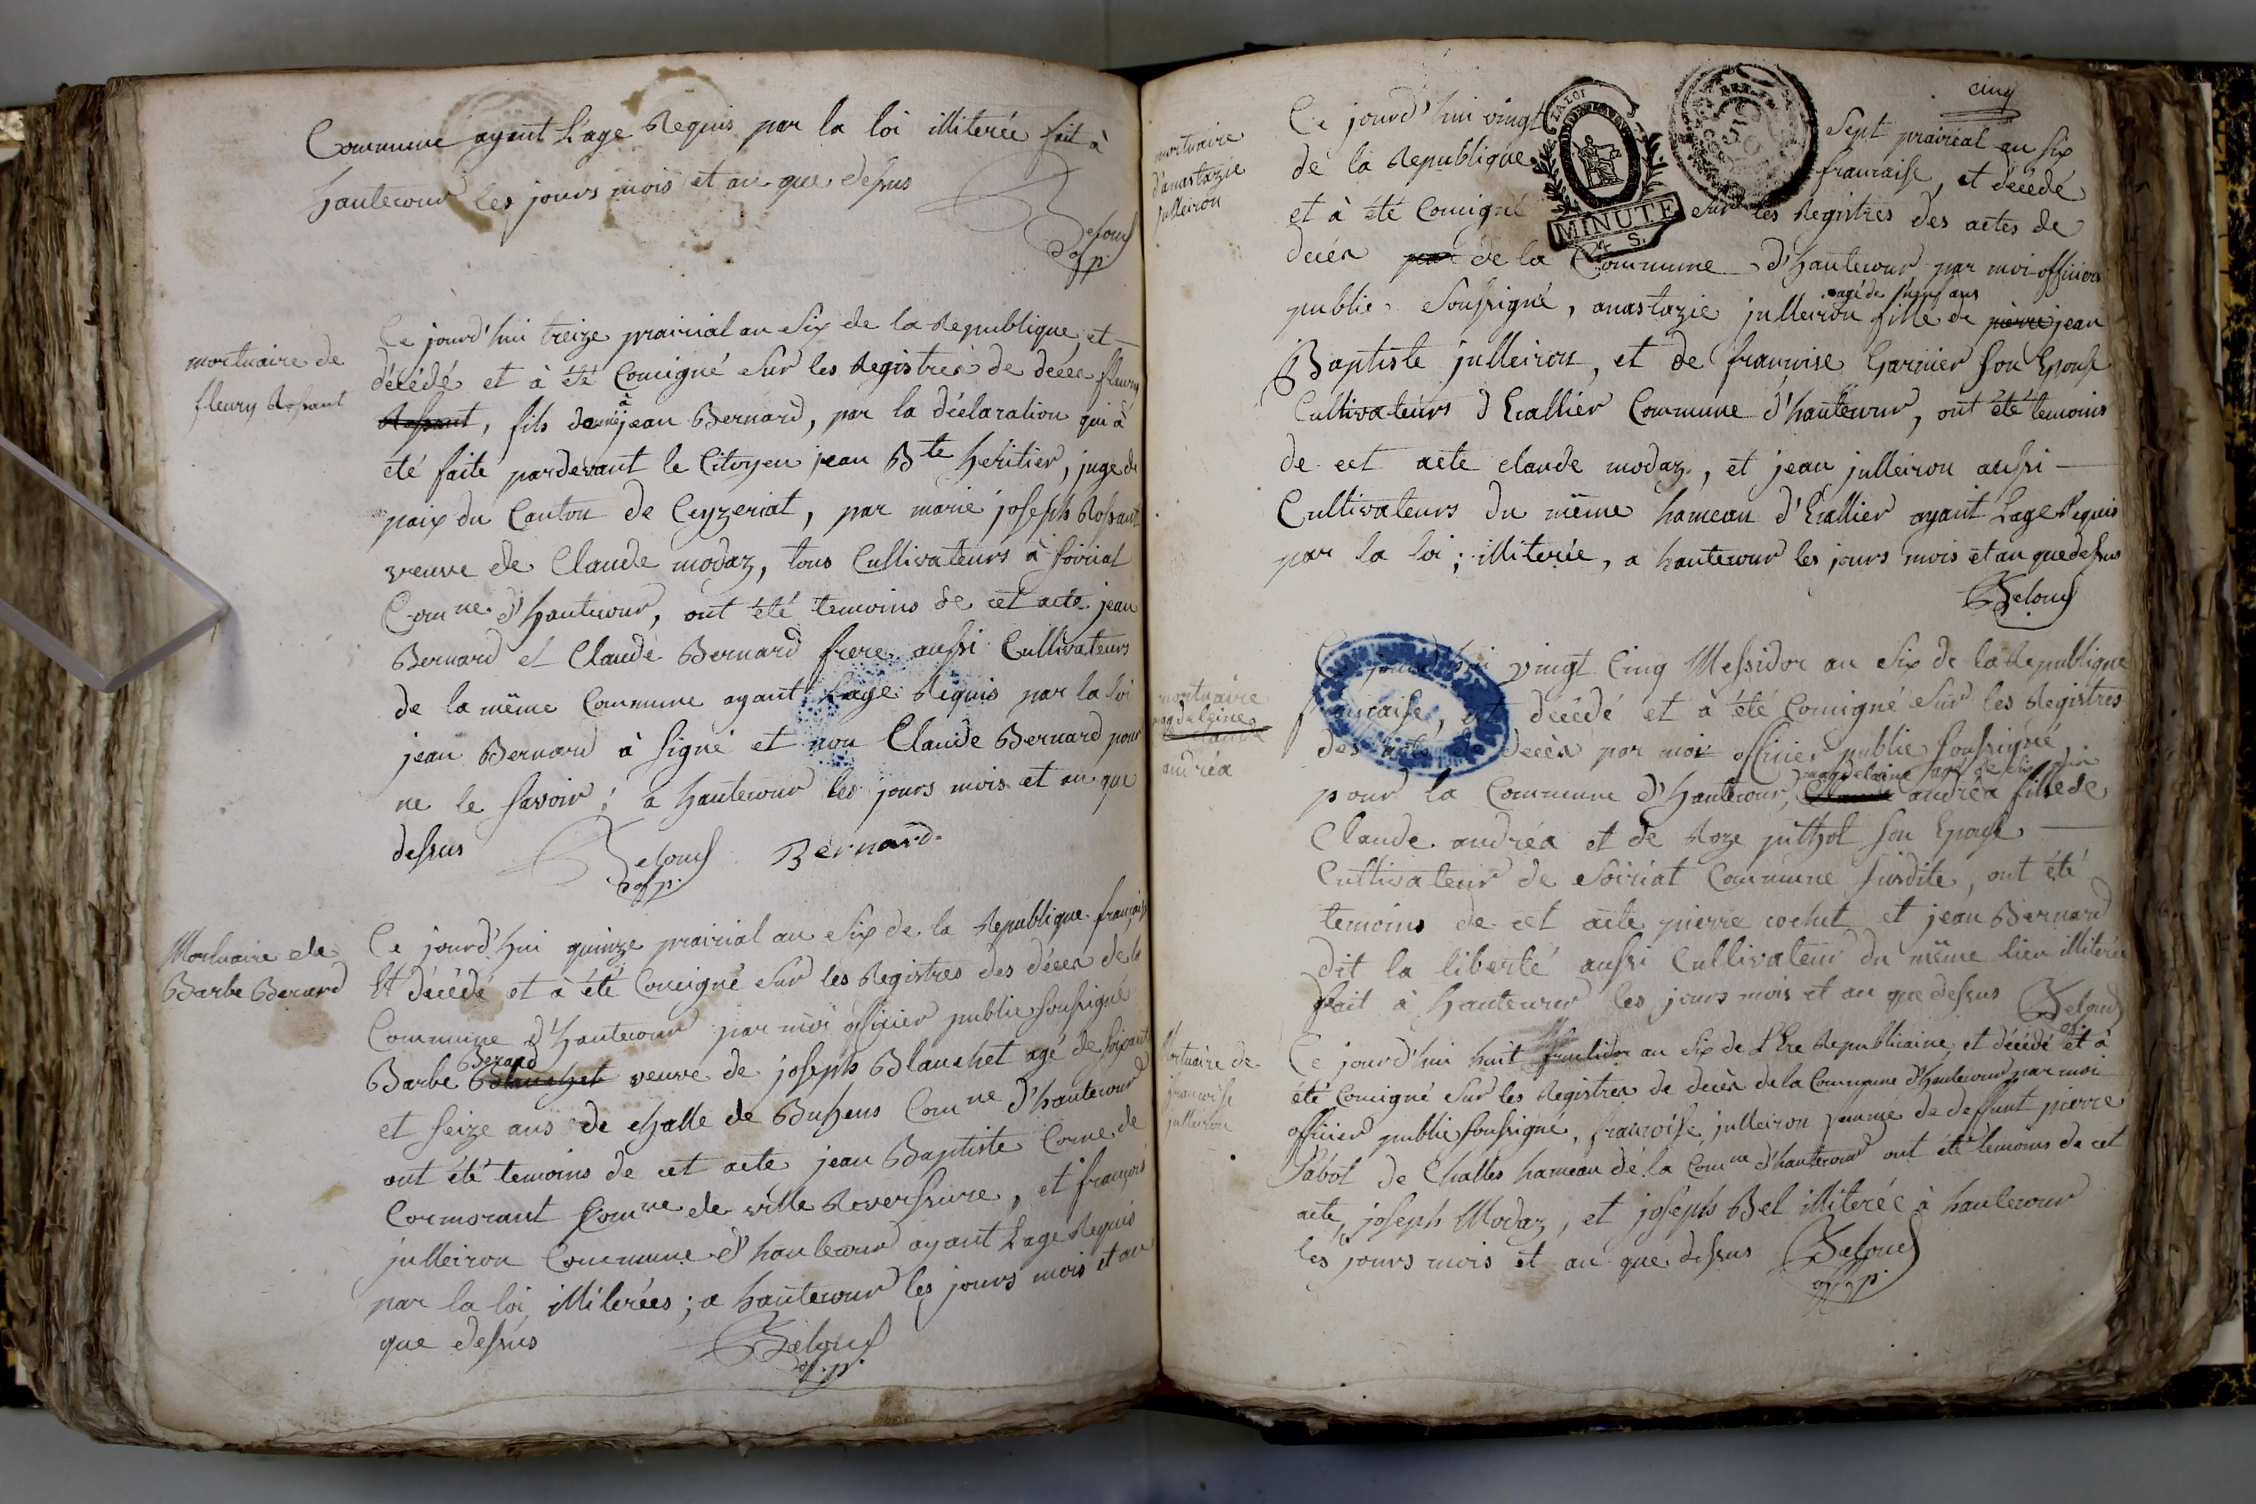 Commune ayant L'age Requis par la loi illiterée fait à
hautecour les jours mois et an que dessus
Belouf
off. p.
mortuaire de
fleury Rossant
Ce jourd'hui treize prairial an Six de la Republique, et
décédé et à été Consigné Sur les Registres de décès fleury
Rossant, fils donné à jean Bernard, par la déclaration qui à
été faite pardevant le Citoyen jean Bte heritier, juge de
paix du Canton de Ceyzeriat, par marie joseph Rossant
veuve de Claude modaz, tous Cultivateurs à Soiriat
Comne d'hautecour, ont été temoins de cet acte jean
Bernard et Claude Bernard frere aussi Cultivateurs
de la même Commune ayant Lage Requis par la loi
jean Bernard à Signé et non Claude Bernard pour
ne le Savoir; a hautecour les jours mois et an que
dessus
Belouf Bernard
off. p.
Mortuaire de
Barbe Berard
Ce jourd'hui quinze prairial an Six de la Republique française
Et décédé et à été Consigné Sur les Registres des décès de la
Commune d'hautecour par moi officier public Soussigné
Berard
Barbe Blanchet veuve de joseph Blanchet agé de Soixante
et Seize ans de Challe de Buhens Comne d'hautecour
ont été temoins de cet acte jean Baptiste Corne de
Cormorant Comne de ville Reversure, et françois
julleiron Commune d'hautecour ayant Lage Requis
par la loi, illiterées; a hautecour les jours mois et an
que dessus
Belouf
off. p.
cinq
LA LOI
MINUTE
4 S.
mortuaire
d'anastazie
julleiron
Ce jourd'hui vingt Sept prairial an Six
de la Republique française, et décédé
et à été Consigné Sur les Registres des actes de
décès par de la Commune d'hautecour par moi officier
public Soussigné, anastazie julleiron fille de pierre jean
Baptiste julleiron, et de françoise Garnier Son Epouse
Cultivateurs d'Erallier Commune d'hautecour, ont été temoins
de cet acte claude modaz, et jean julleiron aussi
Cultivateurs du même hameau d'Erallier ayant Lage Requis
par la loi; illiterée, a hautecour les jours mois et an que dessus
Belouf
mortuaire
magdelaine
Claude
andréa
Ce jourd'hui vingt Cinq Messidor an Six de la Republique
française, est décédé et à été Consigné Sur les Registres
des actes de décès par moi officier public Soussigné,
magdelaine agé de
pour la Commune d'hautecour, Claude andréa fille de
Claude andréa et de Roze puthot Son Epouse
Cultivateur de Soiriat Commune Susdite, ont été
temoins de cet acte pierre cochet et jean Bernard
dit la liberté aussi Cultivateur du même lieu illiterée
fait à hautecour les jours mois et an que dessus Belouf
Mortuaire de
françoise
julleiron
Ce jourd'hui huit fructidor an Six de L'Ere Republicaine, et décédé et à
été Consigné Sur les Registres de décès de la Commune d'hautecour par moi
officier public Soussigné, françoise julleiron femme de deffunt pierre
Sabot de Challes hameau de la Comne d'hautecour ont été temoins de cet
acte, joseph Modaz, et joseph Bel illiterée à hautecour
les jours mois et an que dessus Belouf
off. p.